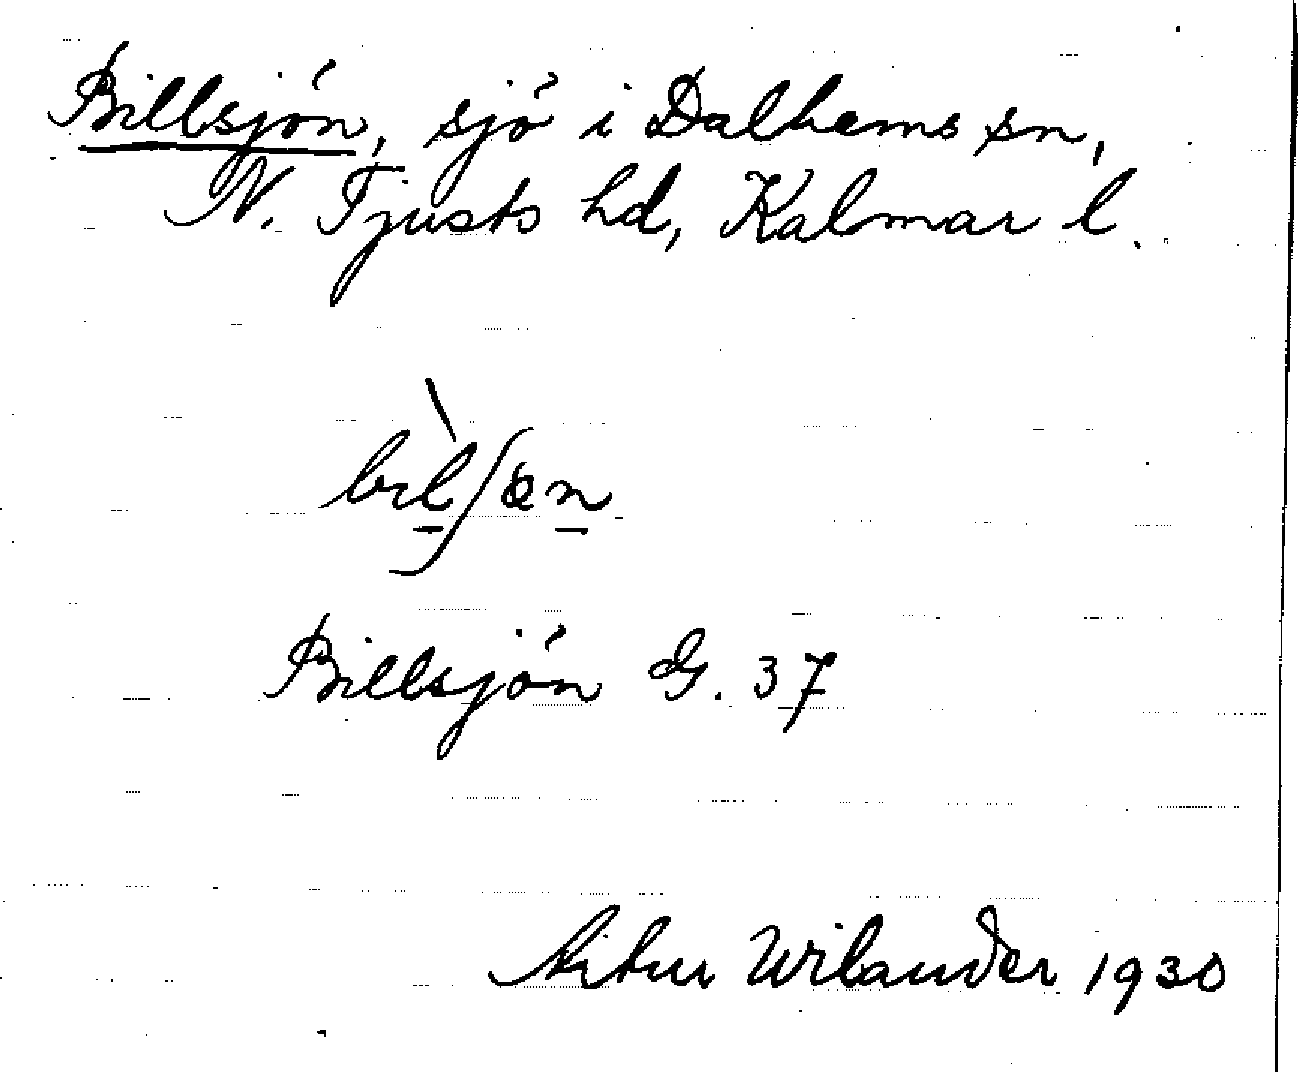 Billsjön, sjö i Dalhems sn,
N. Tjusts hd, Kalmar l.
bìl̲ʃɵn̲
Billsjön G. 37
Artur Wilander 1930